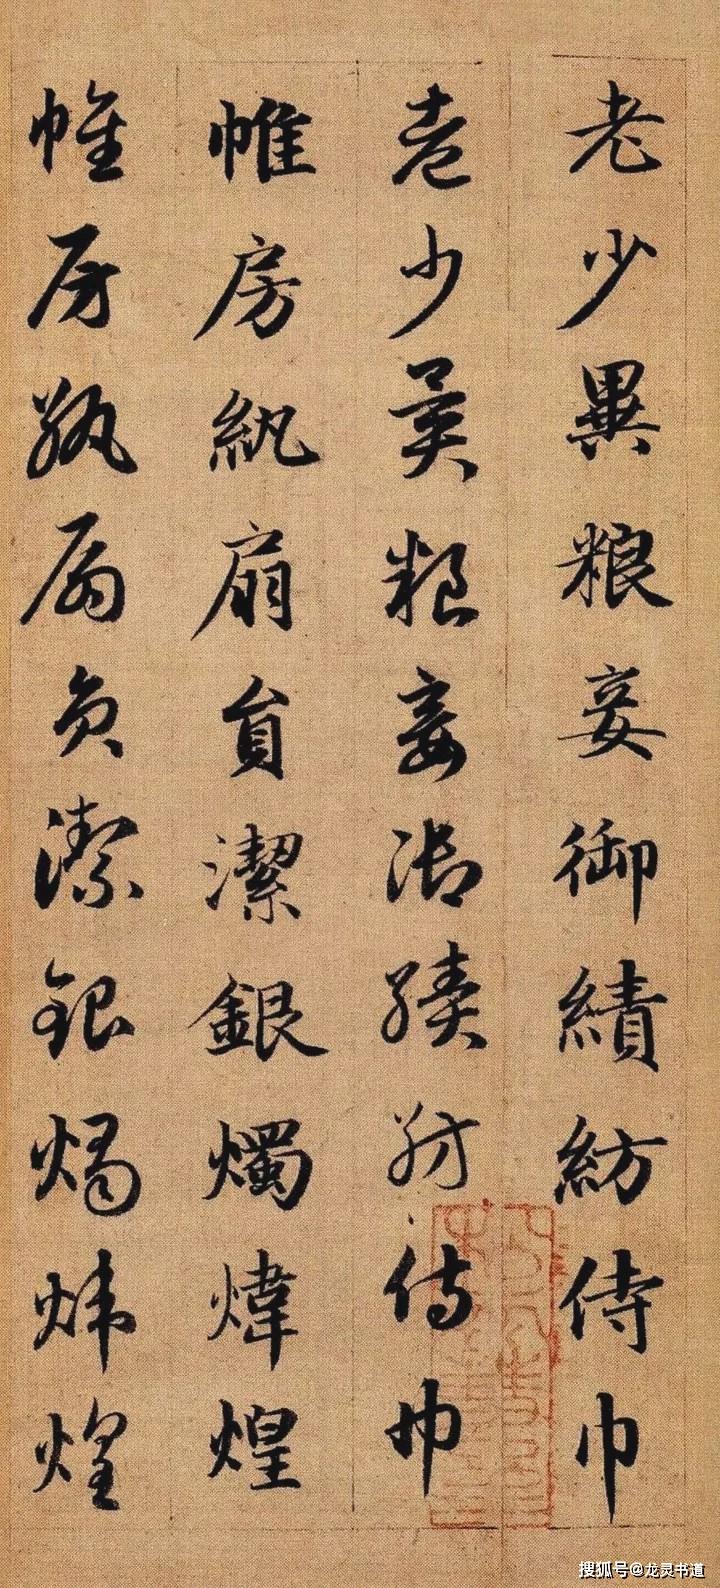 老少異粮妾御績紡侍巾
老少異粮妾御績紡侍巾
帷房紈扇員潔銀燭煒煌
帷房紈扇員潔銀燭煒煌
搜狐号@龙灵书道